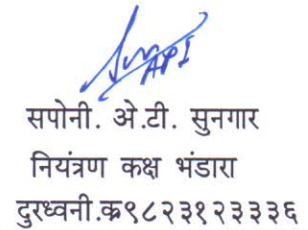 API
सपोनी. अे.टी. सुनगार
नियंत्रण कक्ष भंडारा
दुरध्वनी.क्र९८२३१२३३३६